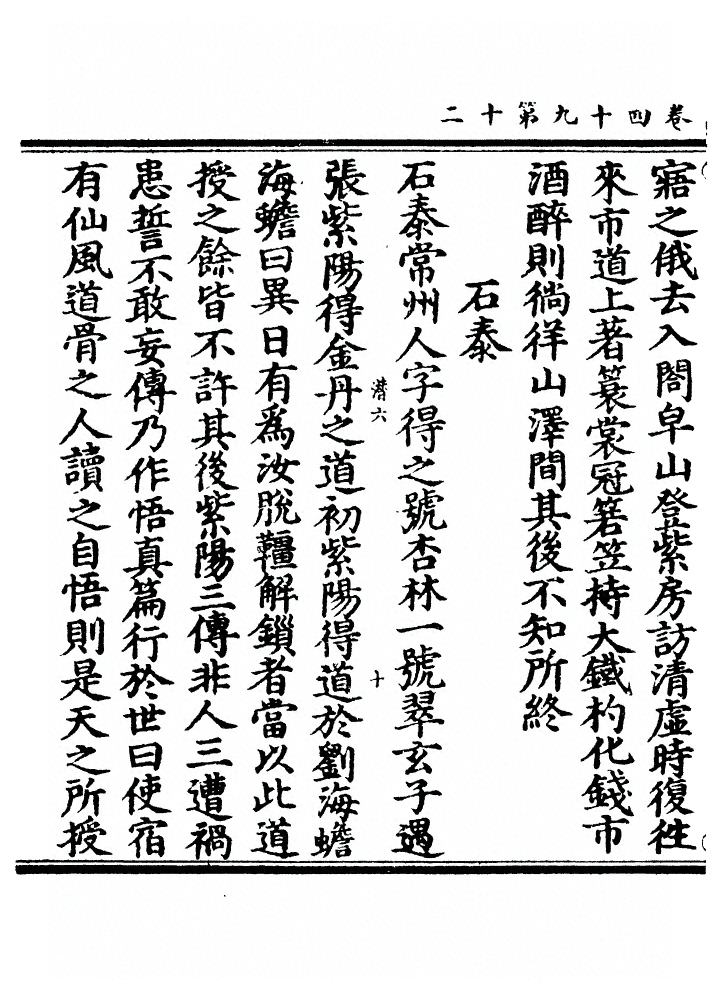 卷四十九第十二
寤之俄去入閤皁山登紫房訪清虛時復徃
來市道上著簑裳冠箬笠持大鐵杓化錢市
酒醉則徜徉山澤間其後不知所終
石泰
石泰常州人字得之號杏林一號翠玄子遇
潛六
十
張紫陽得金丹之道初紫陽得道於劉海蟾
海蟾曰異日有爲汝脫韁解鎖者當以此道
授之餘皆不許其後紫陽三傳非人三遭禍
患誓不敢妄傳乃作悟真篇行於世曰使宿
有仙風道骨之人讀之自悟則是天之所授